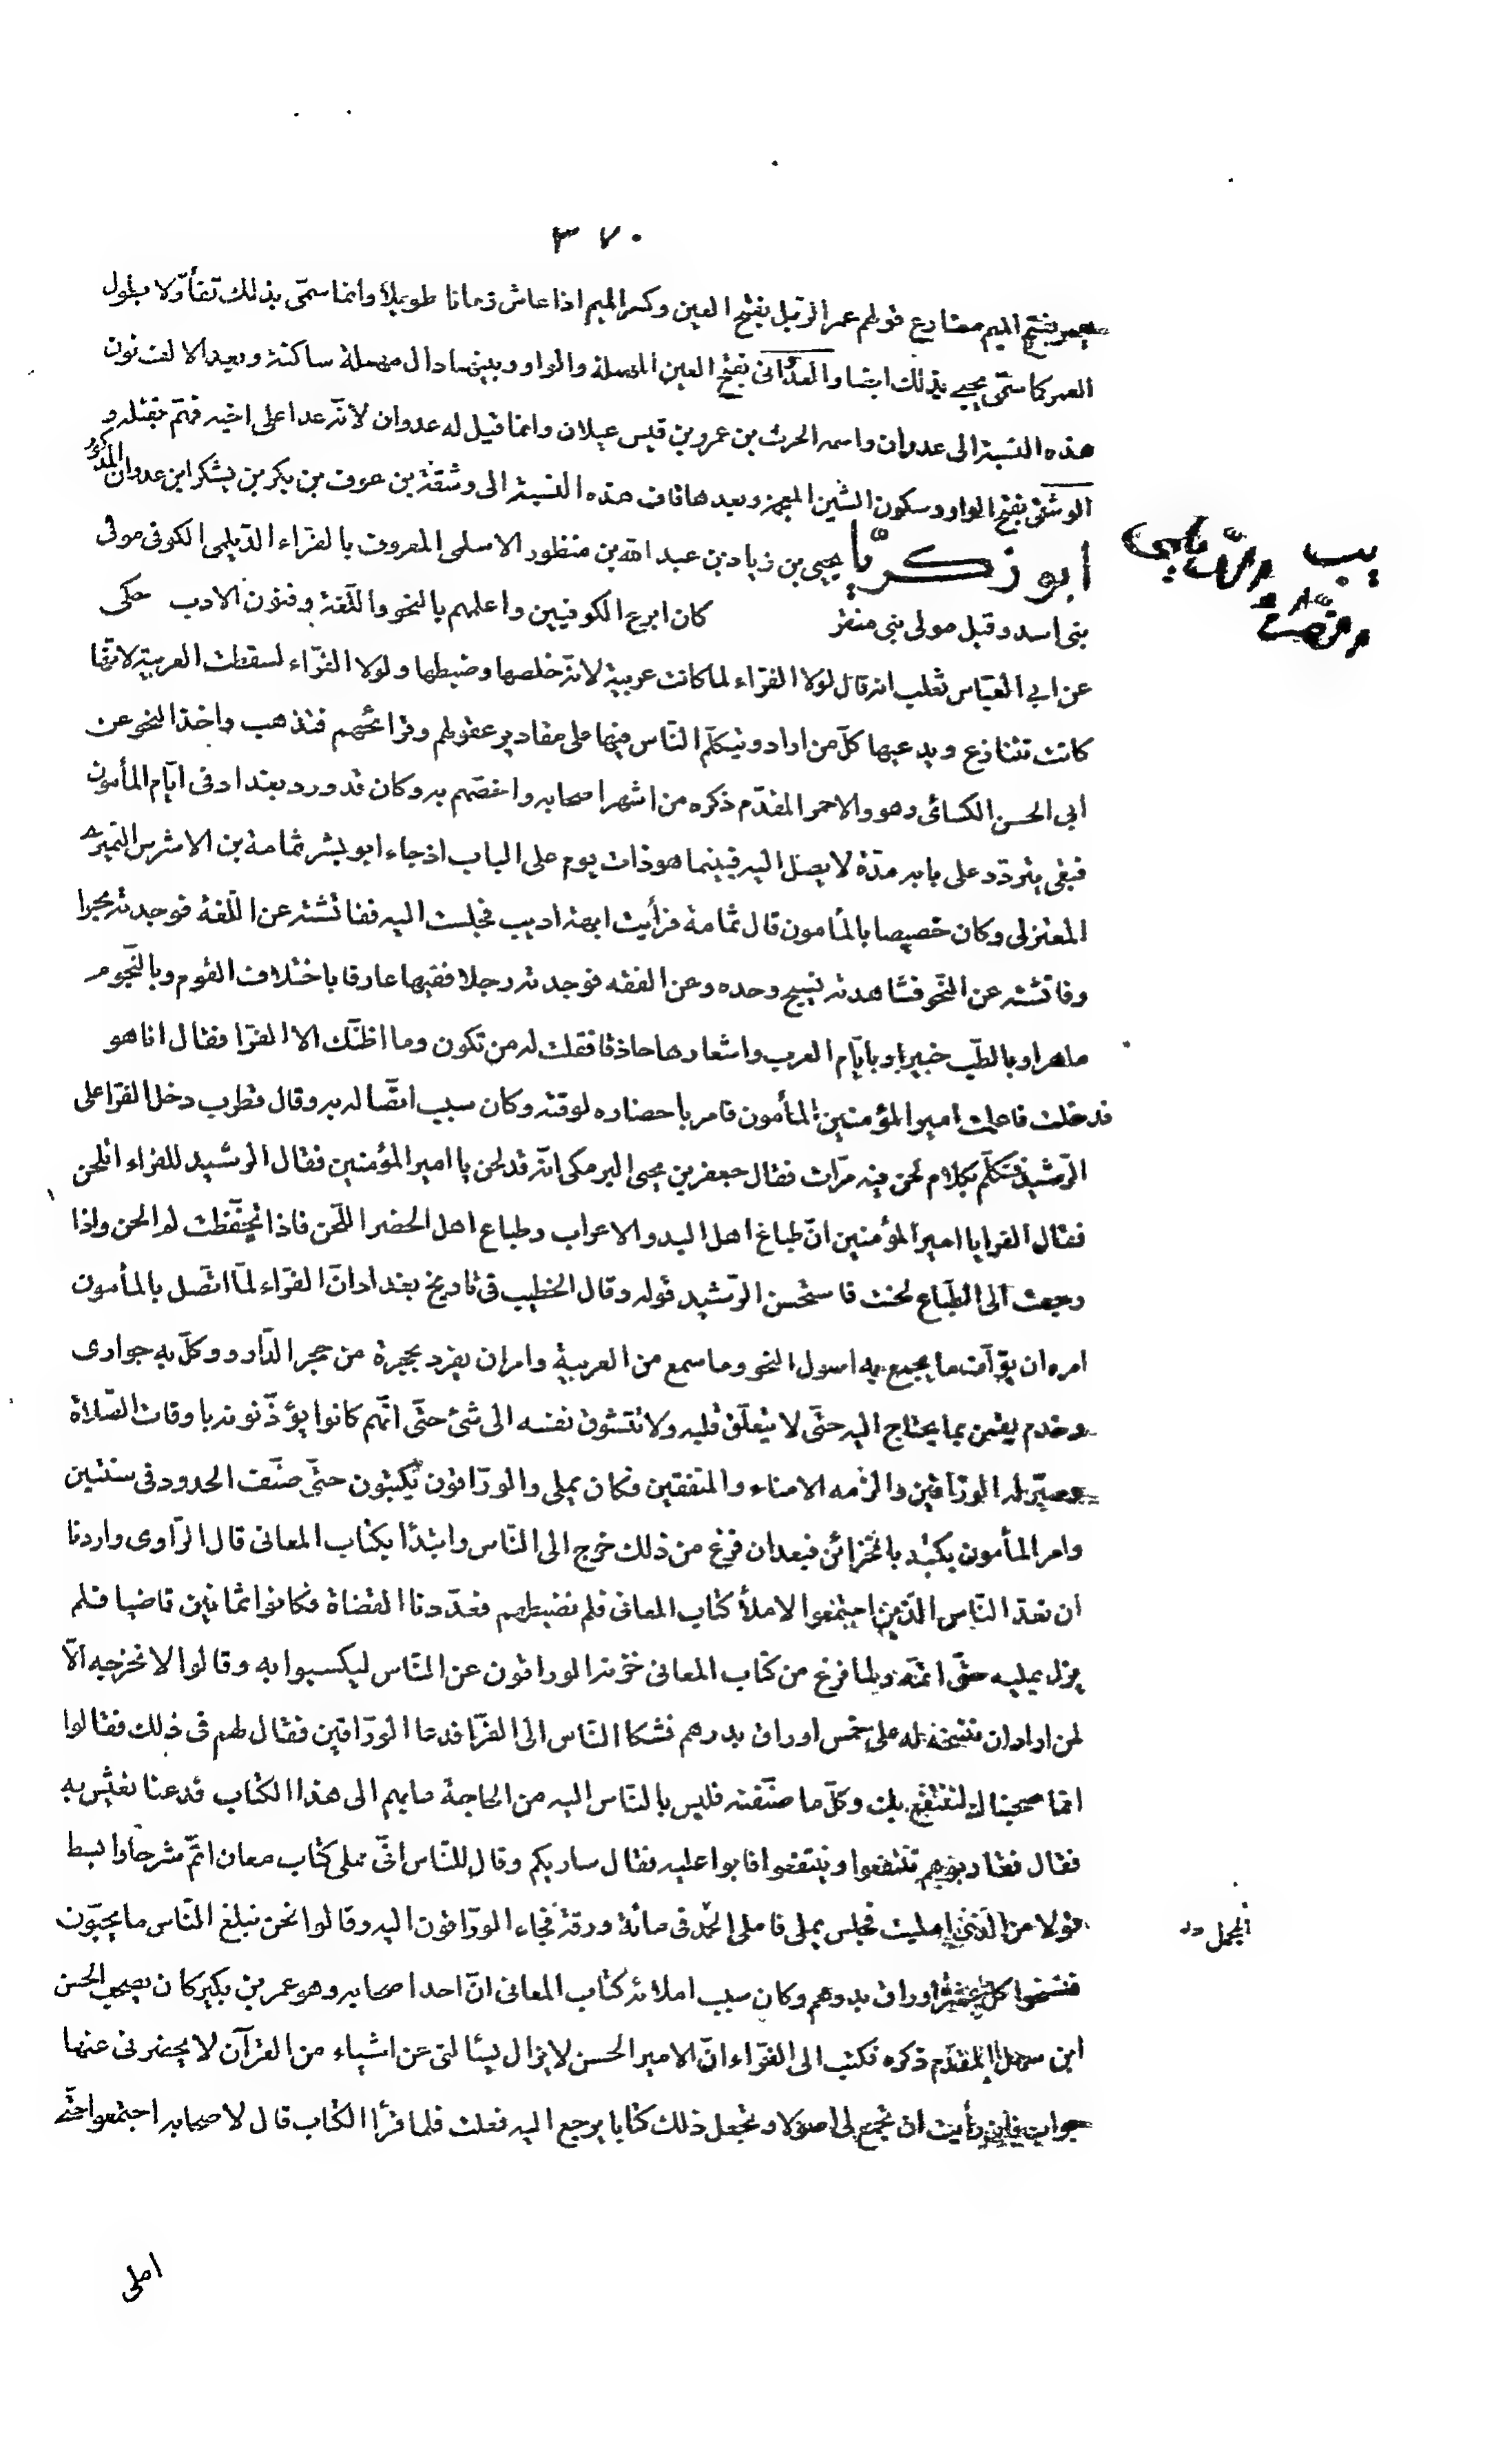 ٣٧٠
يعمر بفتح الميم مضارع قولهم عمر الرجل بفتح العين وكسر الميم اذا عاش زمانا طويلا وانما سمّى بذلك تفأولا بطول
العمر كما سمّى يحيى بذلك ايضا والعدوانى بفتح العين المهملة والواو وبينهما دال مهملة ساكنة وبعد الالف نون
هذه النسبة الى عدوان واسمه الحرث بن عمرو بن قيس عيلان وانما قيل له عدوان لانّه عدا على اخيه فهمّ بقتله و
الوشقى بفتح الواو وسكون الشين المعجمة وبعدها قاف هذه النسبة الى وشقة بن عوف بن بكر بن يشكر ابن عدوان المذكور
ابو زكريّا يحيى بن زياد بن عبد الله بن منظور الاسلمى المعروف بالفرّاء الدّيلمى الكوفى مولى
بنى اسد وقيل مولى بنى منقر كان ابرع الكوفيين واعلمهم بالنحو واللّغة وفنون الادب حكى
عن ابى العبّاس ثعلب انه قال لولا الفرّاء لما كانت عربية لانّه خلصها وضبطها ولولا الفرّاء لسقطت العربية لانّها
كانت تتنازع ويدعيها كلّ من اراد ويتكلّم النّاس فيها على مقادير عقولهم وقرائحهم فتذهب واخذ النحو عن
ابى الحسن الكسائى وهو والاحمر المقدّم ذكره من اشهر اصحابه واخصّهم به وكان قد ورد بغداد فى ايّام المأمون
فبقى يتردّد على بابه مدّة لا يصل اليه فبينما هو ذات يوم على الباب اذ جاء ابو بشر ثمامة بن الاشرس النميرى
المعتزلى وكان خصيصا بالمأمون قال ثمامة فرأيت ابهة اديب فجلست اليه ففاتشته عن اللّغة فوجدته بحرا
وفاتشته عن النّحو فشاهدته نسيج وحده وعن الفقه فوجدته رجلا فقيها عارفا باختلاف القوم وبالنّجوم
ماهرا وبالطّب خبيرا وبايّام العرب واشعارها حاذقا فقلت له من تكون وما اظنّك الا الفرّا فقال انا هو
فدخلت فاعلمت امير المؤمنين المأمون فامر باحضاره لوقته وكان سبب اتصّاله به وقال قطرب دخل الفرّا على
الرّشيد فتكلّم بكلام لحن فيه مرّات فقال جعفر بن يحيى البرمكى انّه قد لحن يا امير المؤمنين فقال الرشيد للفرّاء اتلحن
فقال الفرا يا امير المؤمنين انّ طباع اهل البدو الاعراب وطباع اهل الحضر اللّحن فاذا تحفّظت لم الحن واذا
رجعت الى الطّباع لحنت فاستحسن الرّشيد قوله وقال الخطيب فى تاريخ بغداد انّ الفرّاء لمّا اتّصل بالمأمون
امره ان يؤلّف ما يجمع به اصول النحو وما سمع من العربية وامر ان يفرد بحجرة من حجر الدّار ووكلّ به جوارى
وخدم يقمن بما يحتاج اليه حتّى لا يتعلّق قلبه ولا تتشوق نفسه الى شئ حتّى انّهم كانوا يؤذّنونه باوقات الصّلاة
وصيّر له الورّاقين والزمه الامناء والمنفقين فكان يملى والورّاقون يكتبون حتّى صنّف الحدود فى سنتين
وامر المأمون بكتبه بالخزائن فبعد ان فرغ من ذلك خرج الى النّاس وابتدأ بكتاب المعانى قال الرّاوى واردنا
ان نعدّ النّاس الّذين اجتمعوا لاملأ كتاب المعانى فلم نضبطهم فعدّدنا القضاة فكانوا ثمانين قاضيا فلم
يزل يمليه حتّى اتمّه ولما فرغ من كتاب المعانى خزنه الوراقون عن النّاس ليكسبوا به وقالوا لا نخرجه الّا
لمن اراد ان ننسخه له على خمس اوراق بدرهم فشكا النّاس الى الفرّا فدعا الورّاقين فقال لهم فى ذلك فقالوا
انّما صحبناك لننتفع بك وكلّ ما صنّفته فليس بالنّاس اليه من الحاجة ما بهم الى هذا الكتاب فدعنا نعيش به
فقال فقاربوهم تنتفعوا وينتفعوا فابوا عليه فقال ساريكم وقال للنّاس انّى مملى كتاب معان اتمّ شرحا وابسط
قولا من الّذى امليت فجلس يملى فاملى الحمد فى مائة ورقة فجاء الورّاقون اليه وقالوا نحن نبلغ النّاس ما يحبّون
المجمل
فنسخوا كلّ عشرة اوراق بدرهم وكان سبب املائه كتاب المعانى انّ احد اصحابه وهو عمر بن بكير كان يصحب الحسن
ابن سهل المقدّم ذكره فكتب الى الفرّاء انّ الامير الحسن لا يزال يسألنى عن اشياء من القرآن لا يحضرنى عنها
جواب فان رأيت ان تجمع لى اصولا وتجعل ذلك كتابا يرجع اليه فعلت فلما قرأ الكتاب قال لاصحابه اجتمعوا حتّى
املى